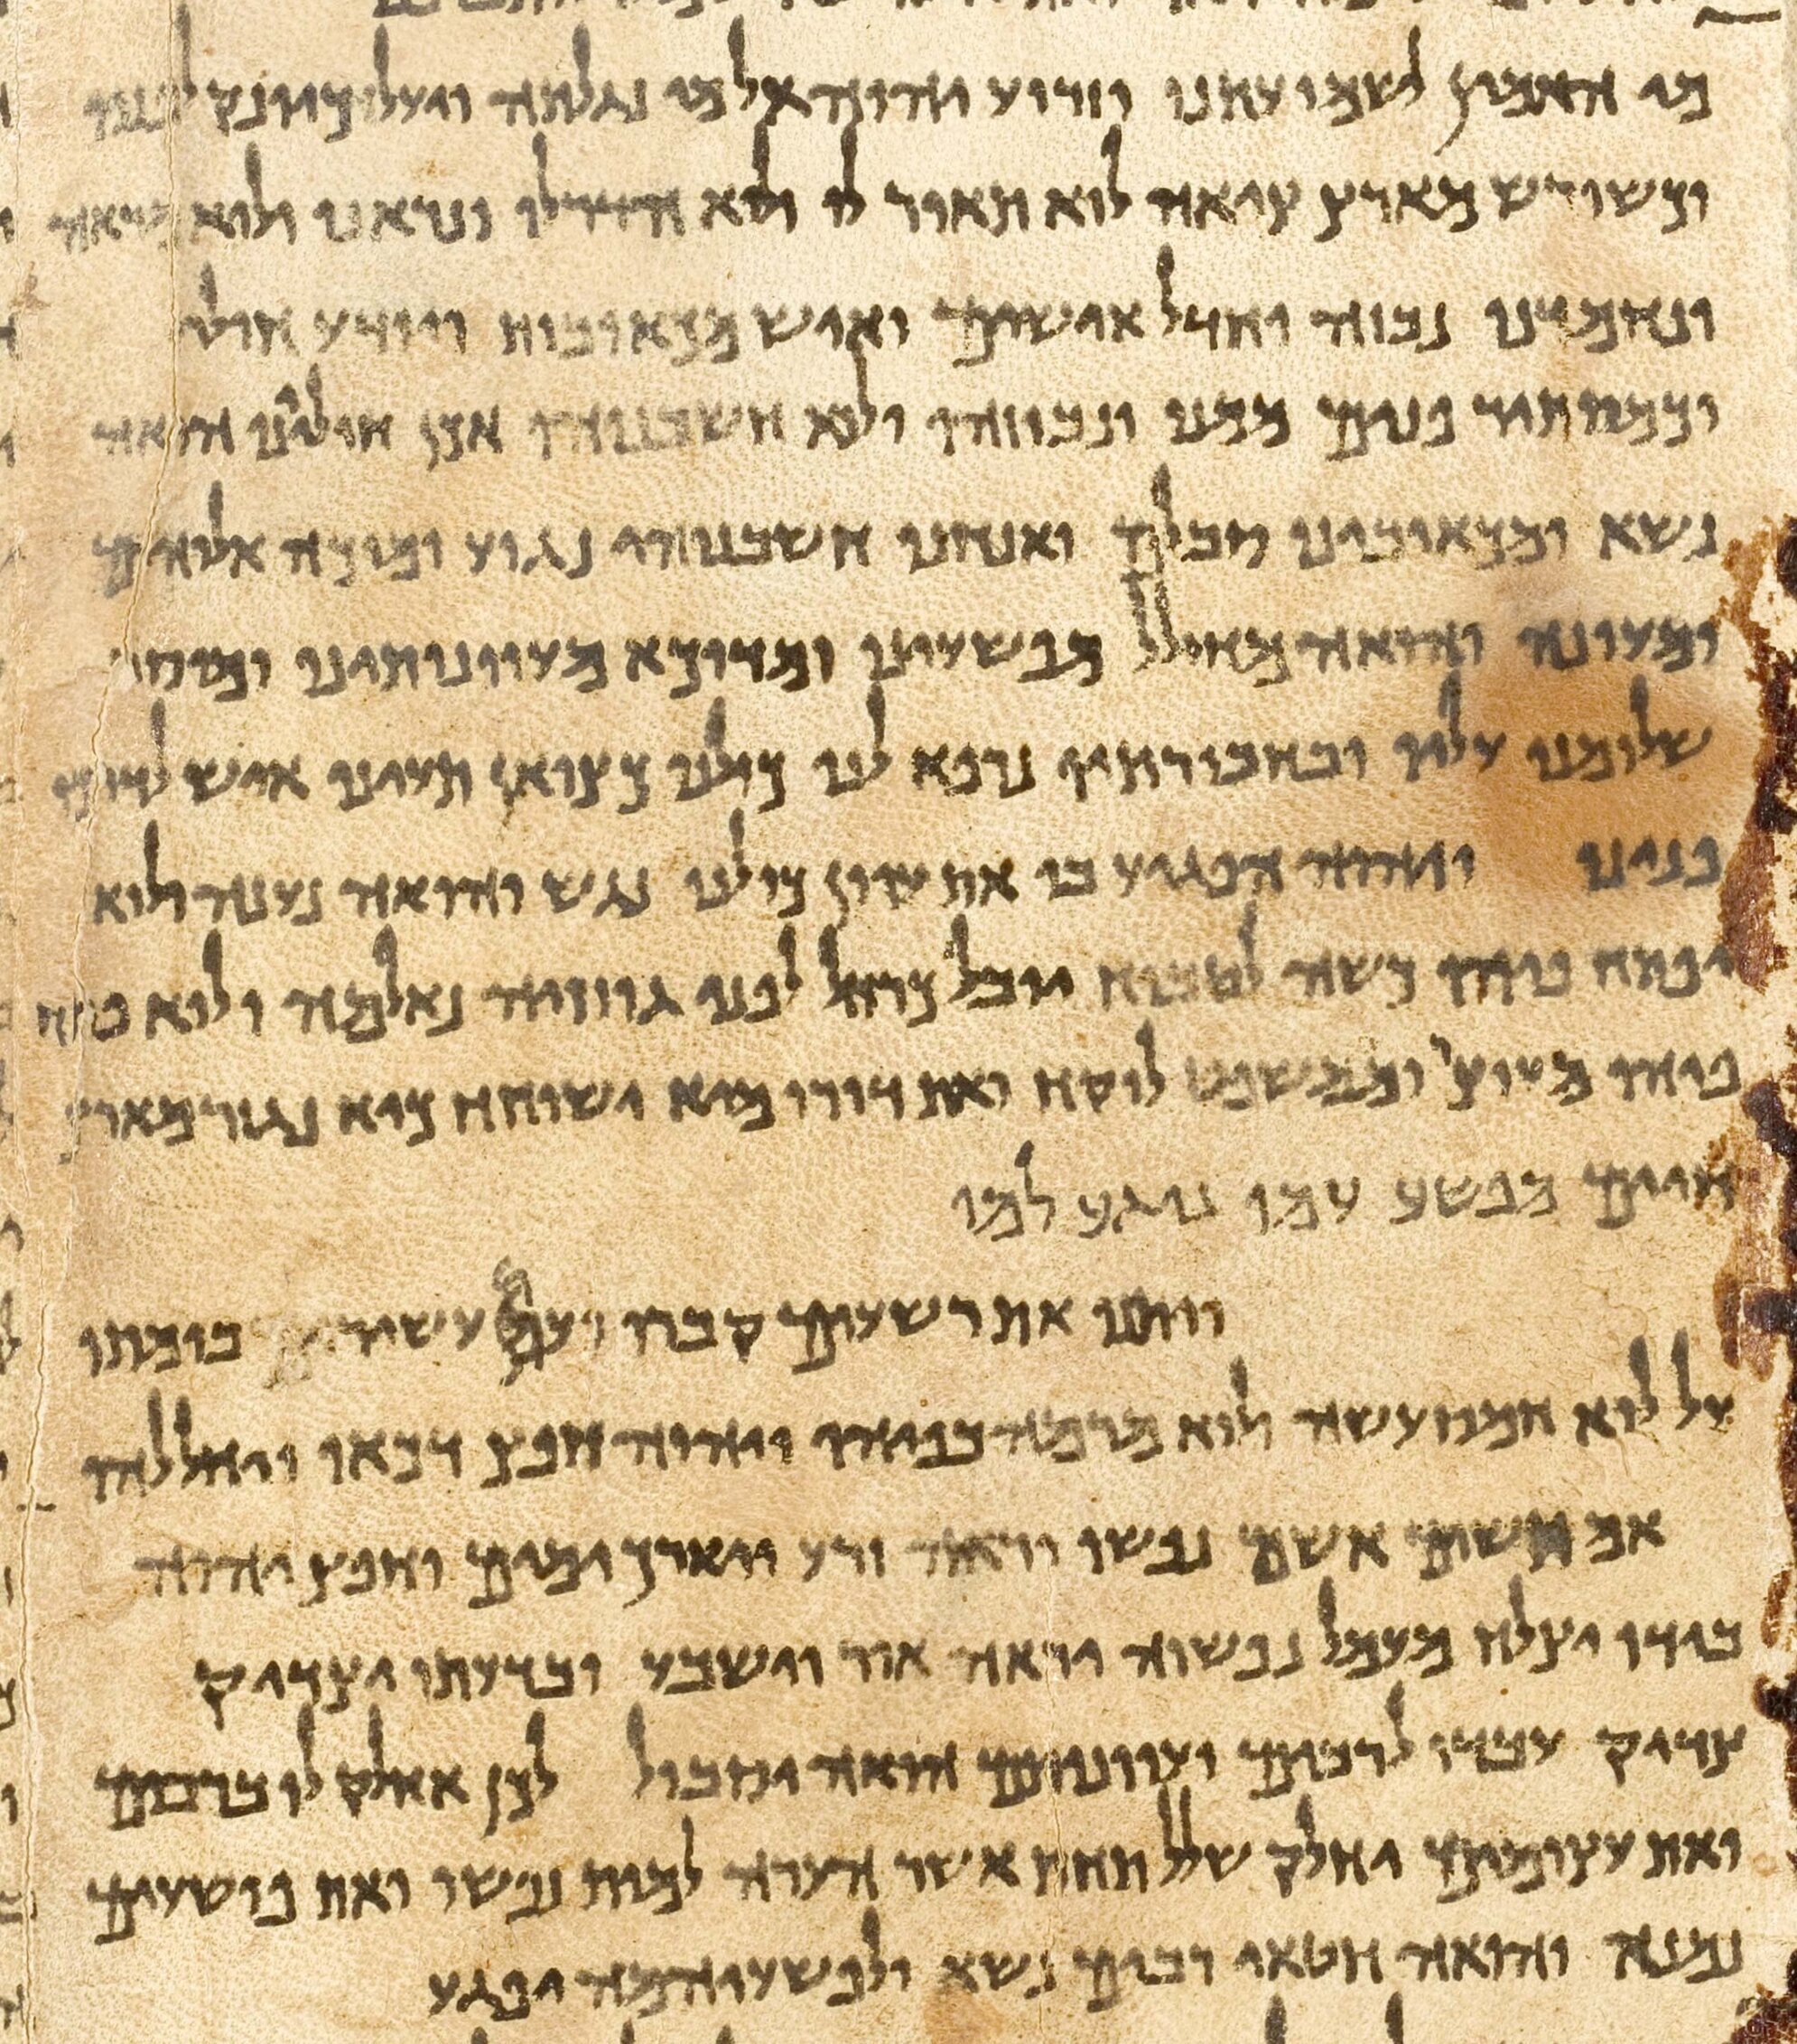 מי האמין לשמועתנו וזרוע יהוה אל מי נגלתה ויעל כיונק לפניו
וכשורש מארץ ציאה לוא תאור לו ולוא הדר לו ונראנו ולוא מראה
ונחמדנו נבזה וחדל אישים ואיש מכאובות ויודע חולי
וכמסתיר פנים ממנו ונבוזהו ולוא חשבנוהו אכן חוליינו הואה
נשא ומכאובינו סבלם ואנחנו חשבנוהו נגוע ומוכה אלוהים
ומעונה והואה מחולל מפשעינו ומדוכא מעוונותינו ומוסר
שלומנו עליו ובחבורתיו נרפא לנו כולנו כצואן תעינו איש לדרכו
פנינו ויהוה הפגיע בו את עוון כולנו נגש והואה נענה ולוא
יפתח פיהו כשה לטבוח יובל כרחל לפני גוזזיה נאלמה ולוא פתח
פיהו מעוצר וממשפט לוקח ואת דורו מיא ישוחח כיא נגזר מארץ
חיים מפשע עמו נוגע למו
ויתנו את רשעים קברו ועם עשירים בומתו
על לוא חמס עשה ולוא מרמה בפיהו ויהוה חפץ דכאו ויחללהו
אם תשים אשם נפשו יראה זרע ויארך ימים וחפץ יהוה
בידו יצלח מעמל נפשוה יראה אור וישבע ובדעתו יצדיק
צדיק עבדו לרבים ועוונותם הואה יסבול לכן אחלק לו ברבים
ואת עצומים יחלק שלל תחת אשר הערה למות נפשו ואת פושעים
נמנא והואה חטאי רבים נשא ולפשעיהמה יפגע